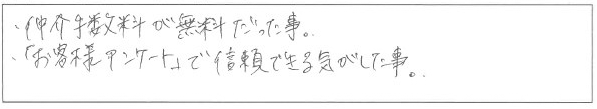 ・仲介手数料が無料だった事。
・「お客様アンケート」で信頼できる気がした事。